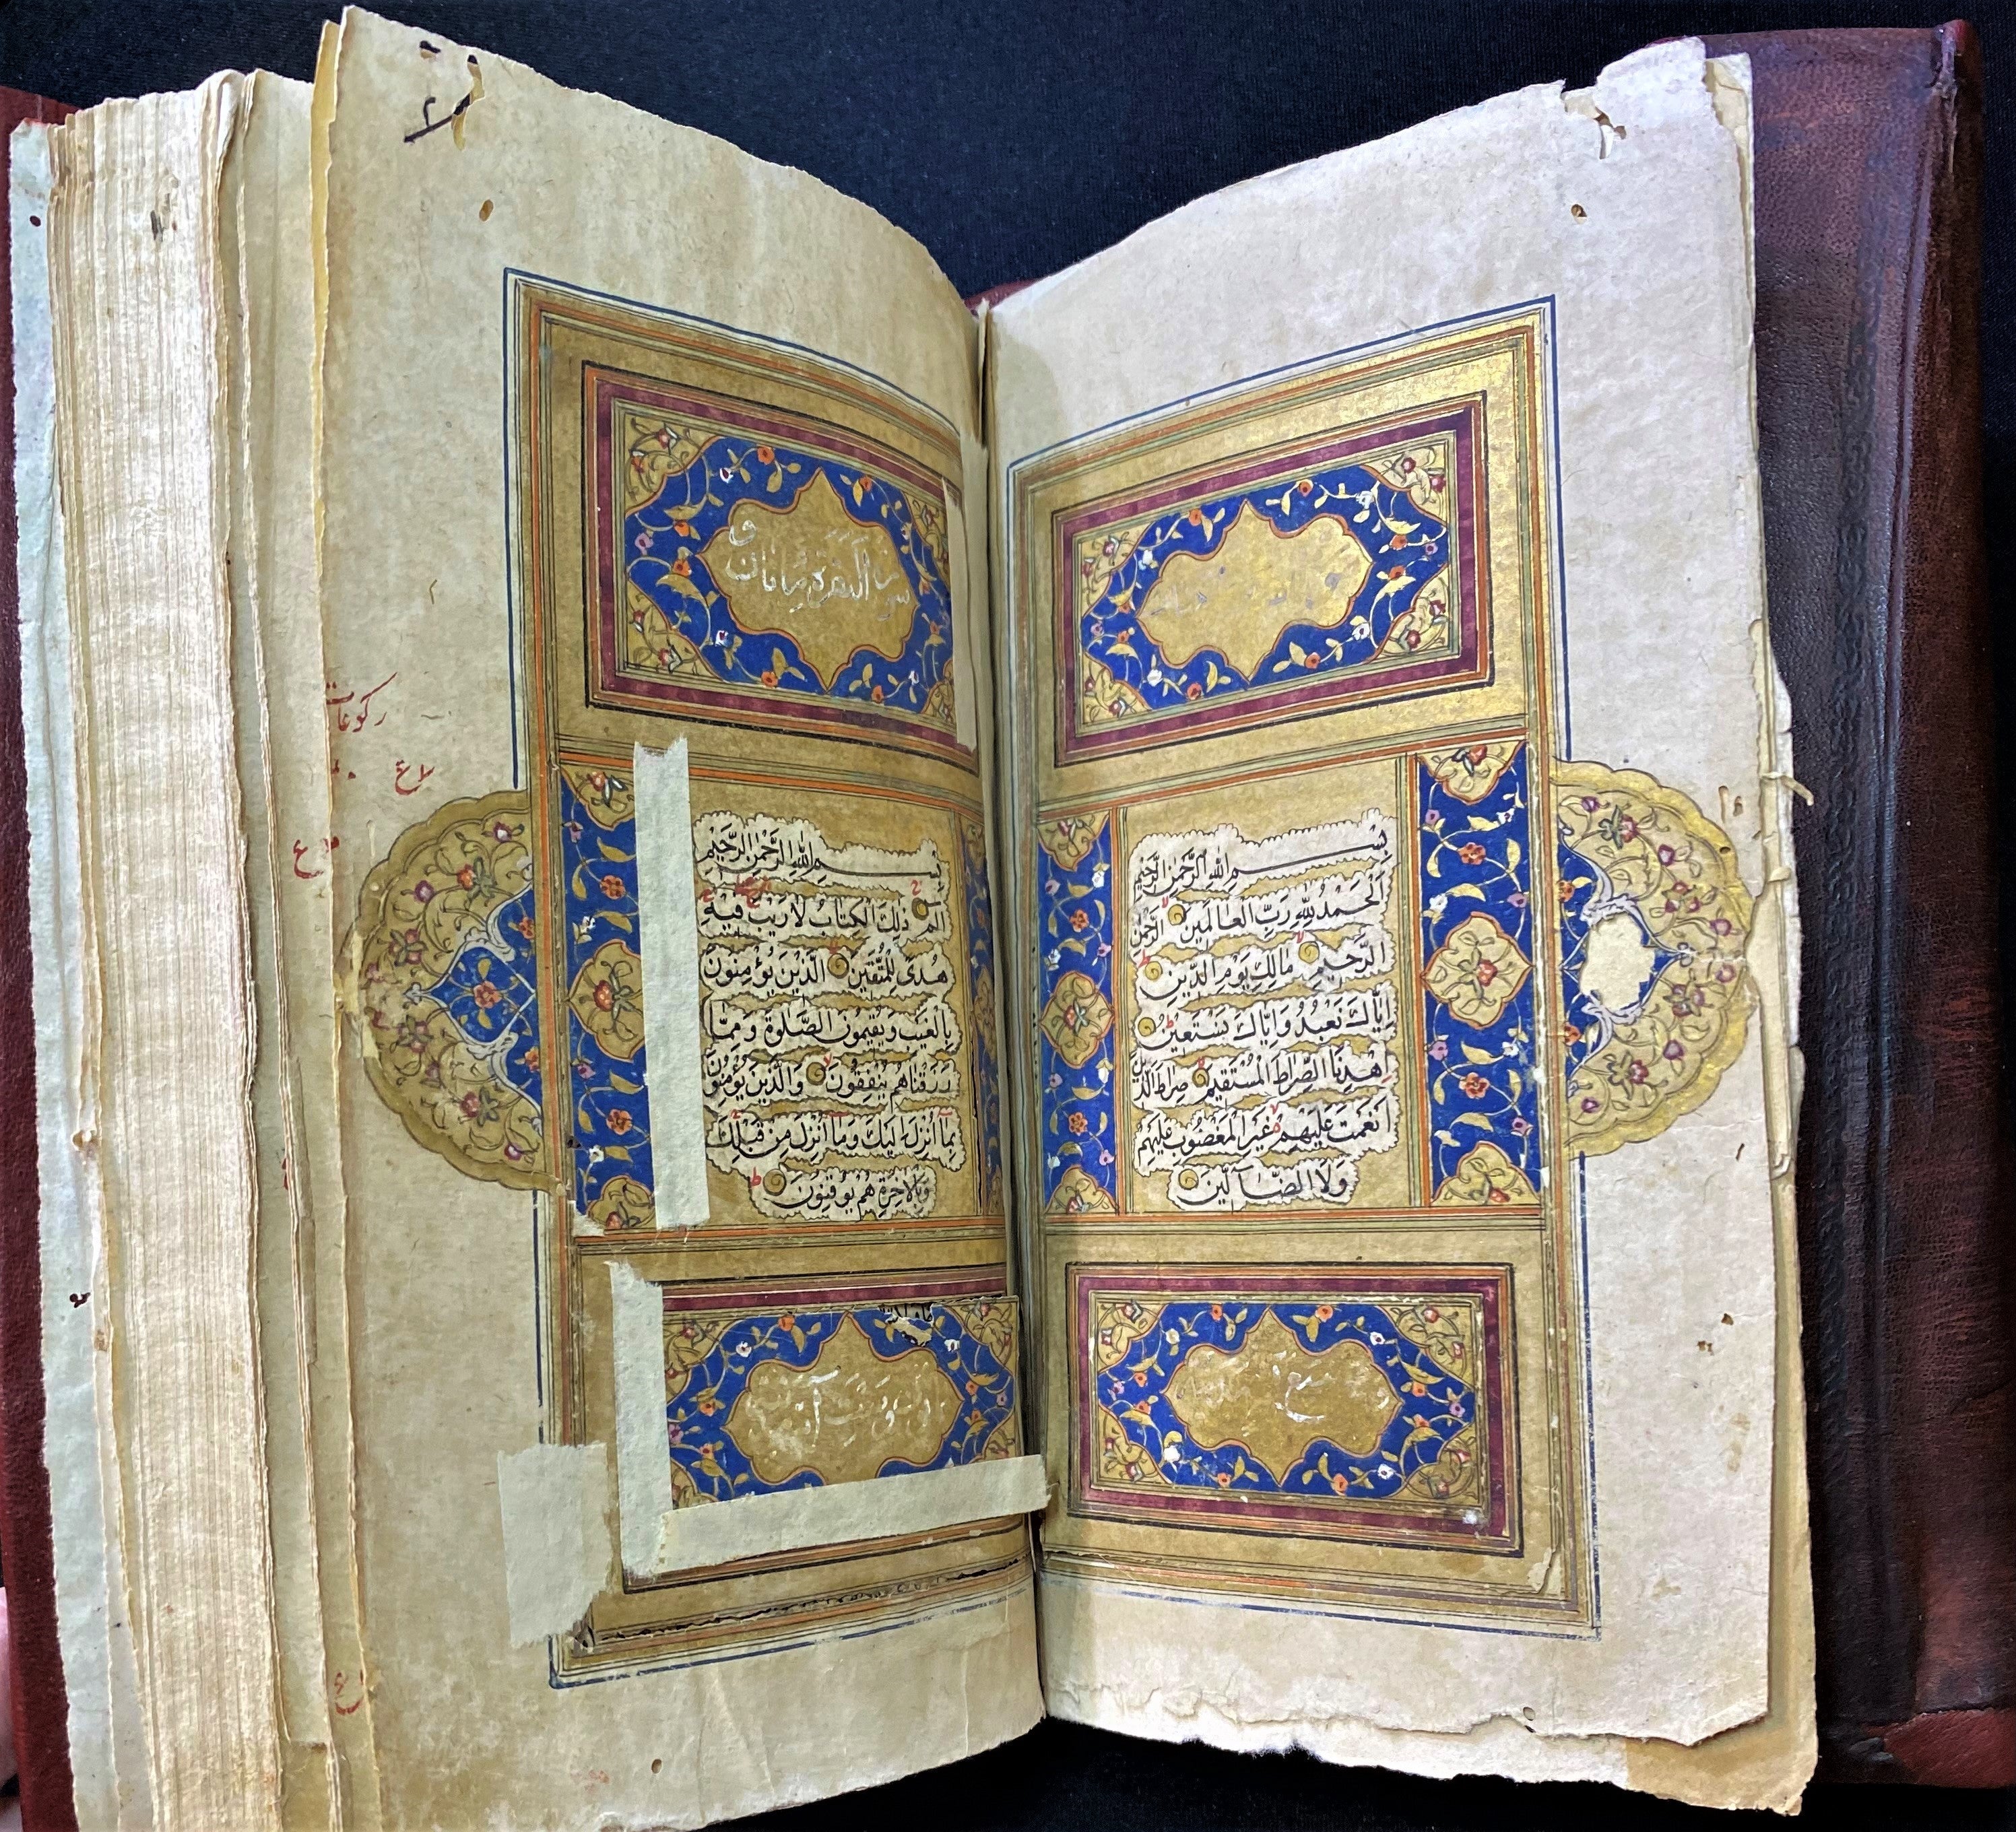 بسم الله الرحمن الرحيم
الحمد لله رب العالمين الرحمن
الرحيم مالك يوم الدين
اياك نعبد واياك نستعين
اهدنا الصراط المستقيم صراط الذين
انعمت عليهم غير المغضوب عليهم
ولا الضالين
٢
سورة البقرة مائتان و
ركوعات
بسم الله الرحمن الرحيم
الم ذلك الكتاب لا ريب فيه
هدى للمتقين الذين يؤمنون
بالغيب ويقيمون الصلوة ومما
رزقناهم ينفقون والذين يؤمنون
بما انزل اليك وما انزل من قبلك
وبالاخرة هم يوقنون